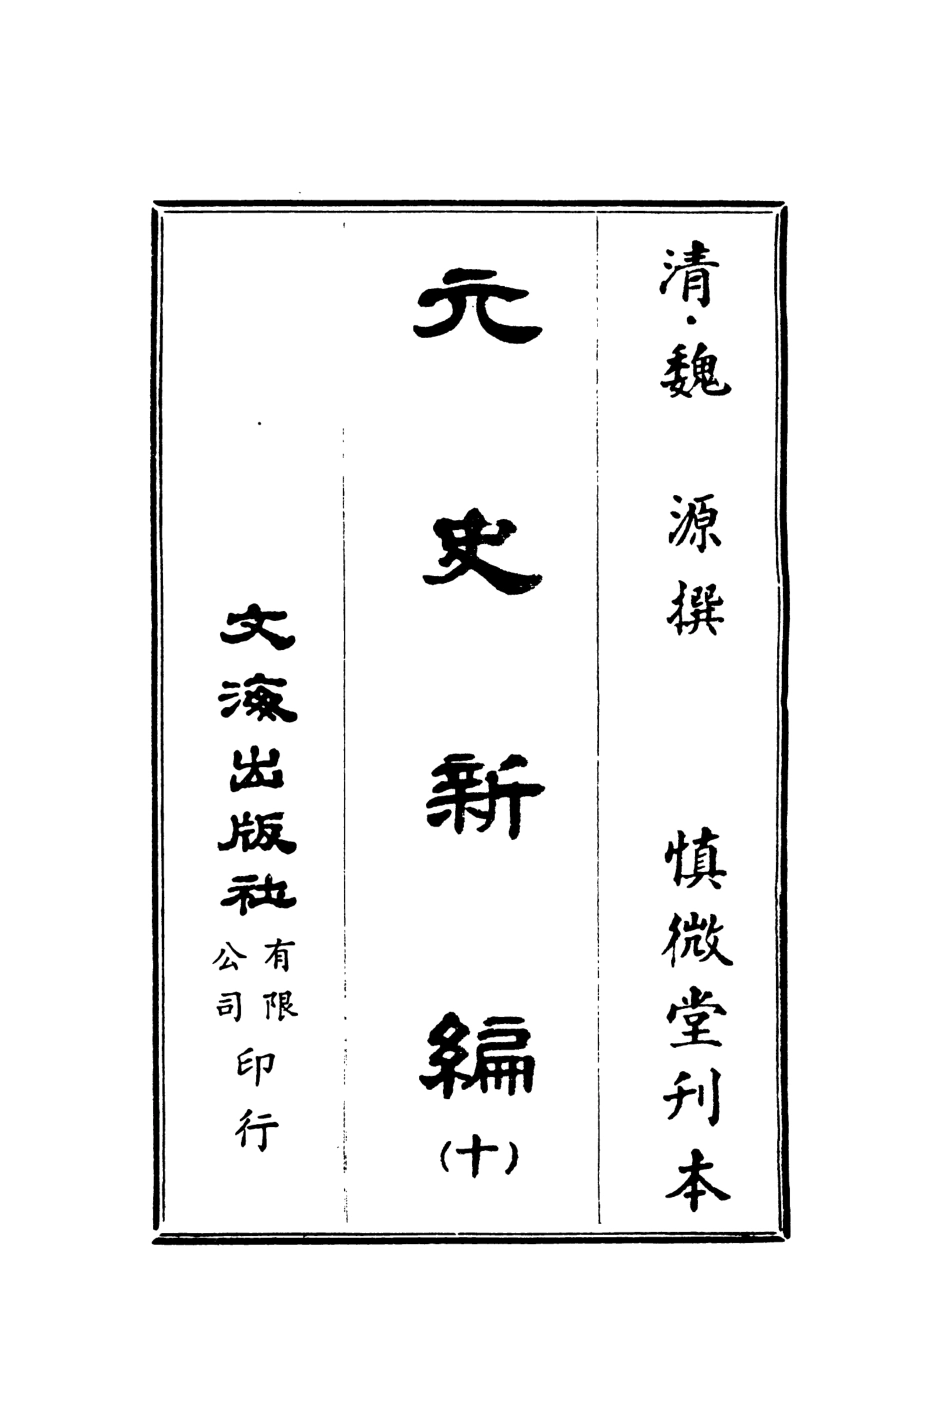 清·魏源撰 慎微堂刊本
元史新編(十)
文海出版社有限公司印行